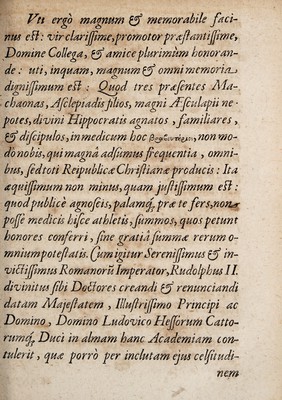 Uti ergò magnum & memorabile faci-
nus est: vir clarissime, promotor præstantissime,
Domine Collega, & amice plurimùm honoran-
de: uti, inquam, magnum & omni memoria
dignissimum est: Quod tres præsentes Ma-
chaonas, Asclepiadis filios, magni Æsculapii ne-
potes, divini Hippocratis agnatos, familiares,
& discipulos, in medicum hoc non mo-
do nobis, qui magnâ adsumus frequentia, omni-
bus, sed toti Reipublicæ Christianæ producis: Ita
æquissimum non minus, quam justissimum est:
quod publicè agnoscis, palamq́, præ te fers, non
posse medicis hisce athletis, summos, quos petunt
honores conferri, sine gratiâ summæ rerum o-
mnium potestatis. Cum igitur Serenissimus & in-
victissimus Romanorũ Imperator, Rudolphus II.
divinitus sibi Doctores creandi & renunciandi
datam Majestatem, Illustrissimo Principi ac
Domino, Domino Ludovico Hessorum Catto-
rumq́, Duci in almam hanc Academiam con-
tulerit, quæ porrò per inclutam ejus celsitudi-
nem